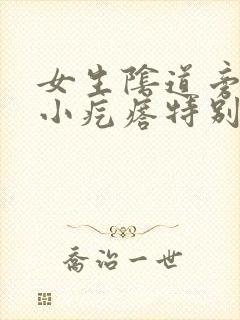 女生陰道旁
小疙瘩特别
喬治一世